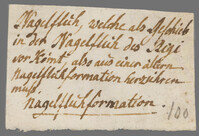 Nagelfluh, welche als Geschieb
in der Nagelfluh des Rigi
vor Kömt, also aus einer ältern
Nagelfluhformation herzurühren
muß.
Nagelfluhformation.
100